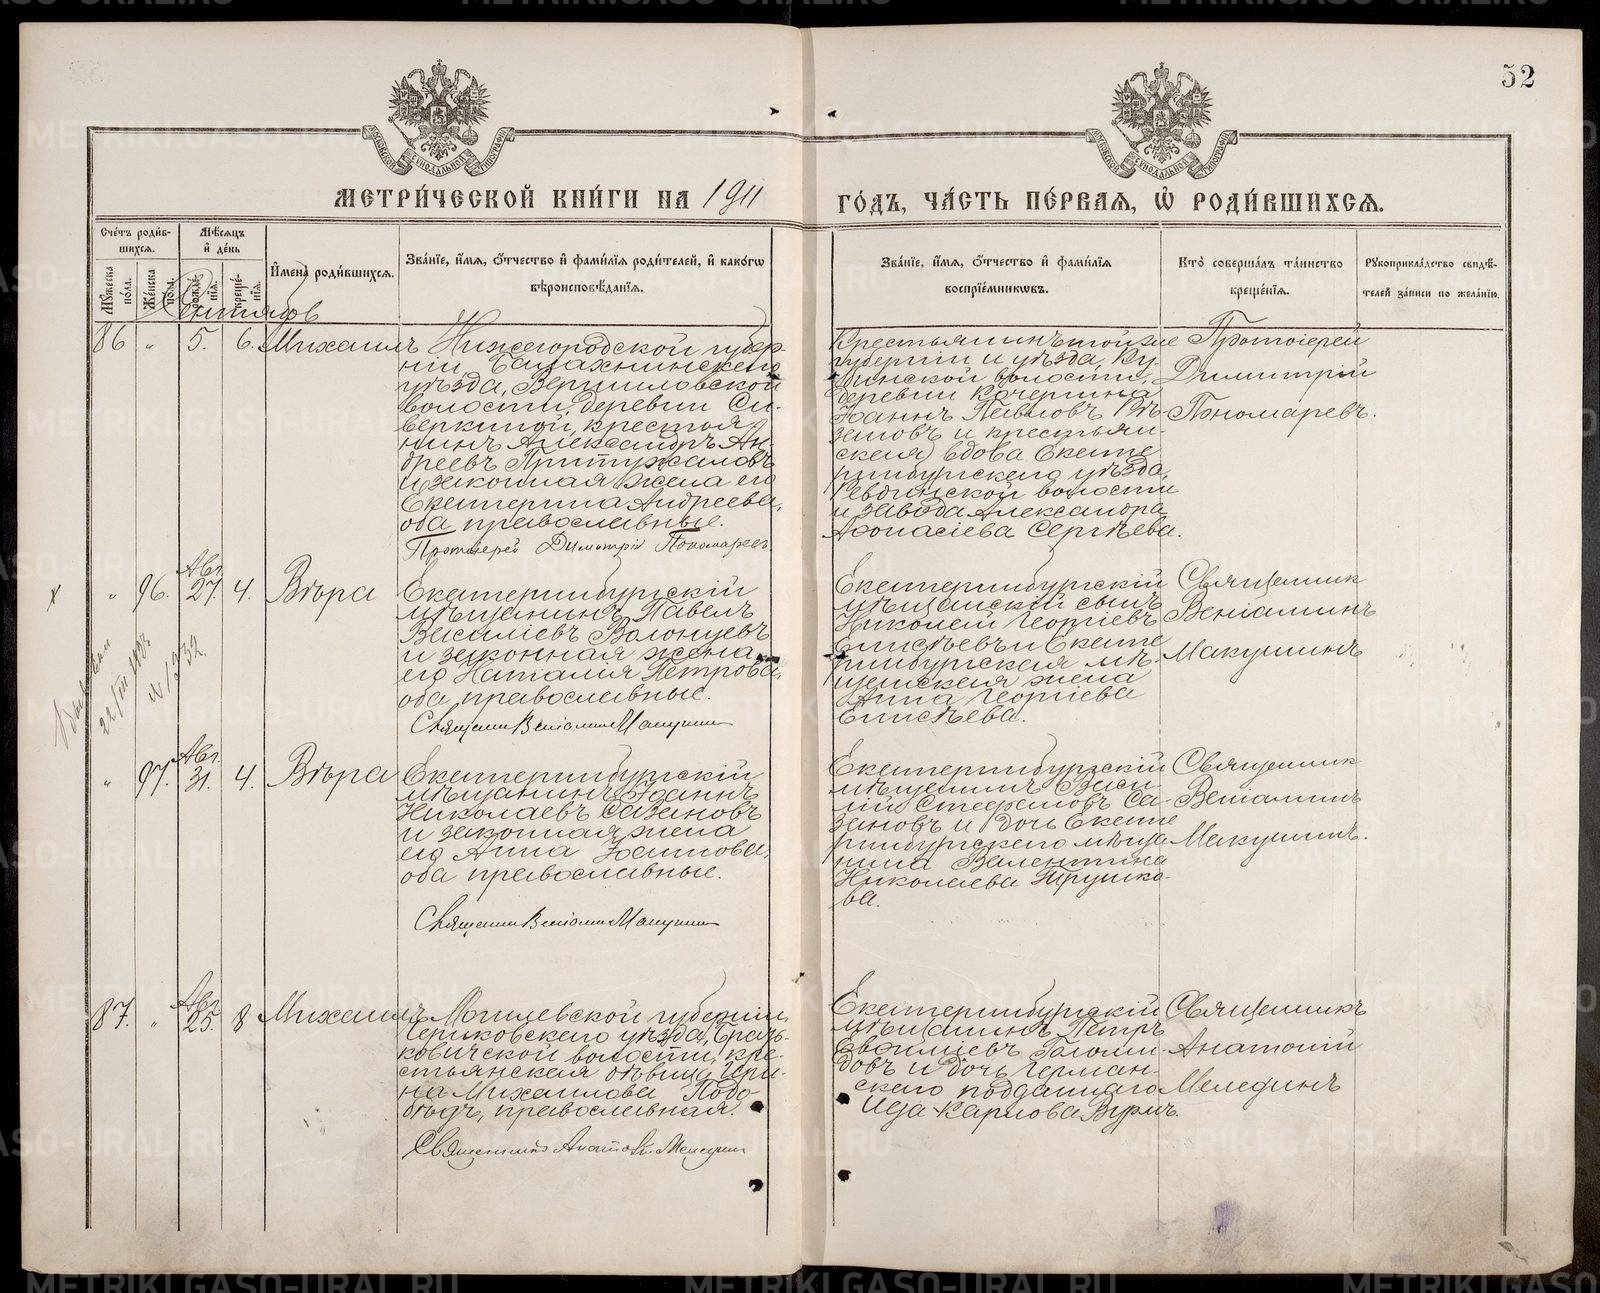 52
МЕТРИ́ЧЕСКОЙ КНИ́ГИ НА 1911 ГО́ДЪ, ЧА́СТЬ ПЕ́РВАЯ, Ѡ҆ РОДИ́ВШИХСЯ.
Сче́тъ роди́в-
шихся.
Му́жеска по́ла.
Же́нска по́ла.
Мѣ́сяцъ
и҆ де́нь
рожде́-
нїя.
креще́-
нїя.
И҆мена̀ роди́вшихся.
Зва́нїе, и҆́мя, ѻ҆́тчество и҆ фами́лїя роди́телей, и҆ како́гѡ
вѣроисповѣ́данїя.
Зва́нїе, и҆́мя, ѻ҆́тчество и҆ фами́лїя
воспрїе́мниковъ.
Кто̀ соверша́лъ та́инство
креще́нїя.
Рꙋкоприкла́дство свидѣ́-
телей за́писи по жела́нїю.
Сентябрь
86 " 5. 6. Михаилъ
Нижегородской губер-
нiи Балахнинскаго
уѣзда, Вершиловской
волости, деревни Си-
веркиной, крестья-
нинъ Александръ Ан-
дреевъ Притужаловъ
и законная жена его
Екатерина Андреева,
оба православные.
Протоiерей Димитрiй Пономаревъ.
Крестьянинъ той же
губернiи и уѣзда,
волости,
деревни Кочергина
Iоаннъ Павловъ Рѣ-
зановъ и крестьян-
ская вдова Екате
ринбургскаго уѣзда,
Ревдинской волости
и завода Александра
Афонасiева Сергѣева.
Протоiерей
Димитрiй
Пономаревъ.
" 96. Авг. 27. 4. Вѣра
Екатеринбургскiй
мѣщанинъ Павелъ
Василiевъ Волонцевъ
и законная жена
его Наталiя Петрова,
оба православные.
Священник Венiамин Макушин
Екатеринбургскiй
мѣщанскiй сынъ
Николай Георгiевъ
Елисѣевъ и Екате
ринбургская мѣ-
щанская жена
Анна Георгiева
Елисѣева.
Священник
Венiаминъ
Макушинъ
" 97. Авг. 31. 4. Вѣра
Екатеринбургскiй
мѣщанинъ Iоаннъ
Николаевъ Сазановъ
и законная жена
его Анна Iоаннова,
оба православные.
Священник Венiамин Макушин
Екатеринбургскiй
мѣщанинъ Васи-
лiй Стефановъ Са-
зановъ и дочь Екате
ринбургскаго мѣща
нина Валентина
Николаева Трушко-
ва.
Священник
Венiаминъ
Макушинъ.
87. " Авг. 25. 8 Михаилъ
Могилевской губернiи
Чериковскаго уѣзда,
волости, кре-
стьянская дѣвица Ири-
на Михаилова
православная.
Священникъ Анатолiй Меледин
Екатеринбургскiй
мѣщанинъ Петръ
Евфимiевъ Голом-
довъ и дочь Герман-
скаго подданнаго
Ида Карлова Вурмъ.
Священникъ
Анатолiй
Мелединъ
METRIKI.GASO-URAL.RU